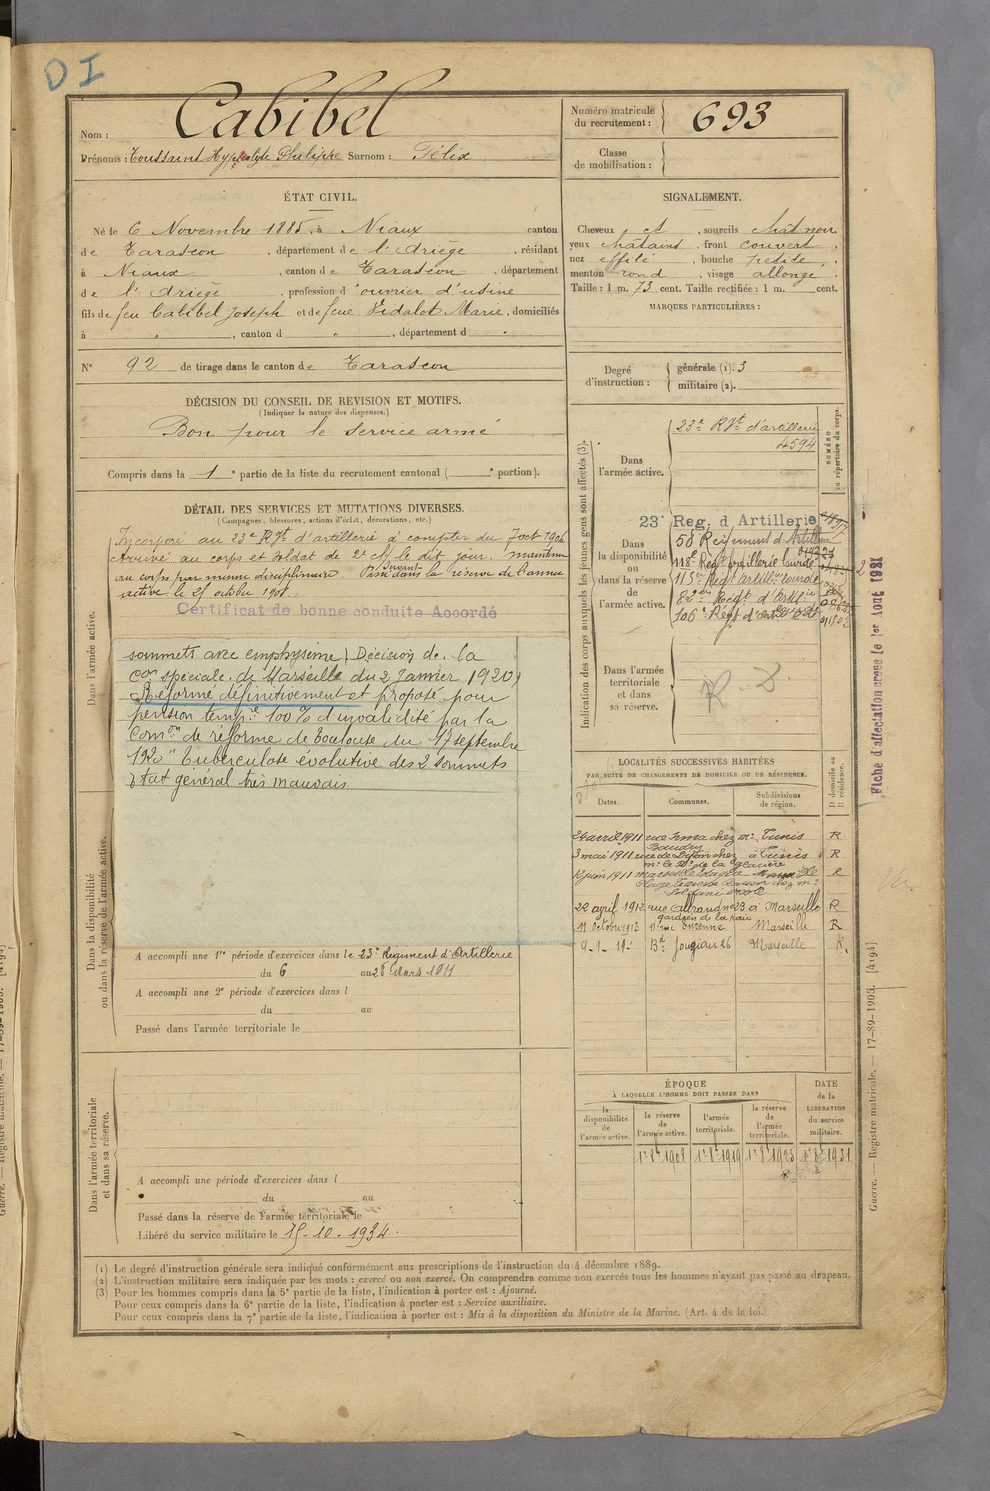 D I
Nom : Cabibel
Prénoms : Toussaint Hyppolyte Philippe Surnom : Félix
Numéro matricule du recrutement : 693
Classe de mobilisation :
ÉTAT CIVIL.
Né le 6 Novembre 1885, à Niaux canton
de Tarascon, département de l'Ariège, résidant
à Niaux, canton de Tarascon, département
de l'Ariège, profession d'ouvrier d'usine
fils de feu Cabibel Joseph et de feue Vidalot Marie, domiciliés
à " , canton d " , département d "
N° 92 de tirage dans le canton de Tarascon
SIGNALEMENT.
Cheveux et , sourcils chât noir,
yeux châtains , front couvert ,
nez effilé , bouche petite ,
menton rond , visage allongé .
Taille : 1 m. 73 cent. Taille rectifiée : 1 m. cent.
MARQUES PARTICULIÈRES :
Degré d'instruction :
générale (1). 3
militaire (2).
DÉCISION DU CONSEIL DE REVISION ET MOTIFS.
(Indiquer la nature des dispenses.)
Bon pour le service armé
Compris dans la 1e partie de la liste du recrutement cantonal ( e portion).
DÉTAIL DES SERVICES ET MUTATIONS DIVERSES.
(Campagnes, blessures, actions d'éclat, décorations, etc.)
Dans l'armée active.
Incorporé au 23e Rgt d'artillerie à compter du 7 oct 1906
Arrivé au corps et soldat de 2e cl, le dit jour. maintenu
au corps par mesure disciplinaire. Passé dans la réserve de l'armée
active le 25 octobre 1908.
Certificat de bonne conduite Accordé
sommets avec emphysème) Décision de la
Con spéciale de Marseille du 2 Janvier 1920)
Réformé définitivement et proposé pour
pension tempre 100% d'invalidité par la
Comon de réforme de Toulouse du 17 septembre
1920 "Tuberculose évolutive des 2 sommets
état général très mauvais.
Dans la disponibilité
ou dans la réserve de l'armée active.
A accompli une 1re période d'exercices dans le 23e Régiment d'Artillerie
du 6 au 28 Mars 1911
A accompli une 2e période d'exercices dans l
du au
Passé dans l'armée territoriale le
Dans l'armée territoriale
et dans sa réserve.
A accompli une période d'exercices dans l
du au
Passé dans la réserve de l'armée territoriale le
Libéré du service militaire le 15-10-1934.
Indication des corps auxquels les jeunes gens sont affectés (3).
NUMÉRO
au répertoire du corps.
Dans l'armée active.
23e Rgt d'artillerie
4594
Dans la disponibilité ou dans la réserve de l'armée active.
23e Reg. d'Artillerie
56e Régiment d'Artillerie
118e Régt d'artillerie lourde
115e Régt Artillerie lourde
82e Régt d'Artie
106e Régt d'Artie
Dans l'armée territoriale et dans sa réserve.
R. D.
Fiche d'affectation créée le 1er Août 1931
LOCALITÉS SUCCESSIVES HABITÉES
PAR SUITE DE CHANGEMENTS DE DOMICILE OU DE RÉSIDENCE.
Dates. Communes. Subdivisions de région. D domicile ou R résidence.
24 avril 1911 rue chez mr Tunis R
Baudry
3 mai 1911 rue de Dijon chez à Tunis R
mr le Dr de la glacière
12 juin 1911 Marseille R
22 avril 1912 rue 23 à Marseille R
gardien de la paix
11 Octobre 1913 11 rue Turenne Marseille R
9-1-19 Bd Jougian 26 Marseille R.
ÉPOQUE
À LAQUELLE L'HOMME DOIT PASSER DANS
DATE de la LIBÉRATION du service militaire.
la disponibilité de l'armée active.
la réserve de l'armée active.
l'armée territoriale.
la réserve de l'armée territoriale.
1r 8bre 1908 1r 8bre 1919 1r 8bre 1925 1r 8bre 1931
(1) Le degré d'instruction générale sera indiqué conformément aux prescriptions de l'instruction du 4 décembre 1889.
(2) L'instruction militaire sera indiquée par les mots : exercé ou non exercé. On comprendra comme non exercés tous les hommes n'ayant pas passé au drapeau.
(3) Pour les hommes compris dans la 5e partie de la liste, l'indication à porter est : Ajourné.
Pour ceux compris dans la 6e partie de la liste, l'indication à porter est : Service auxiliaire.
Pour ceux compris dans la 7e partie de la liste, l'indication à porter est : Mis à la disposition du Ministre de la Marine. (Art. 4 de la loi.)
Guerre. — Registre matricule. — 17-89-1905. [4194]